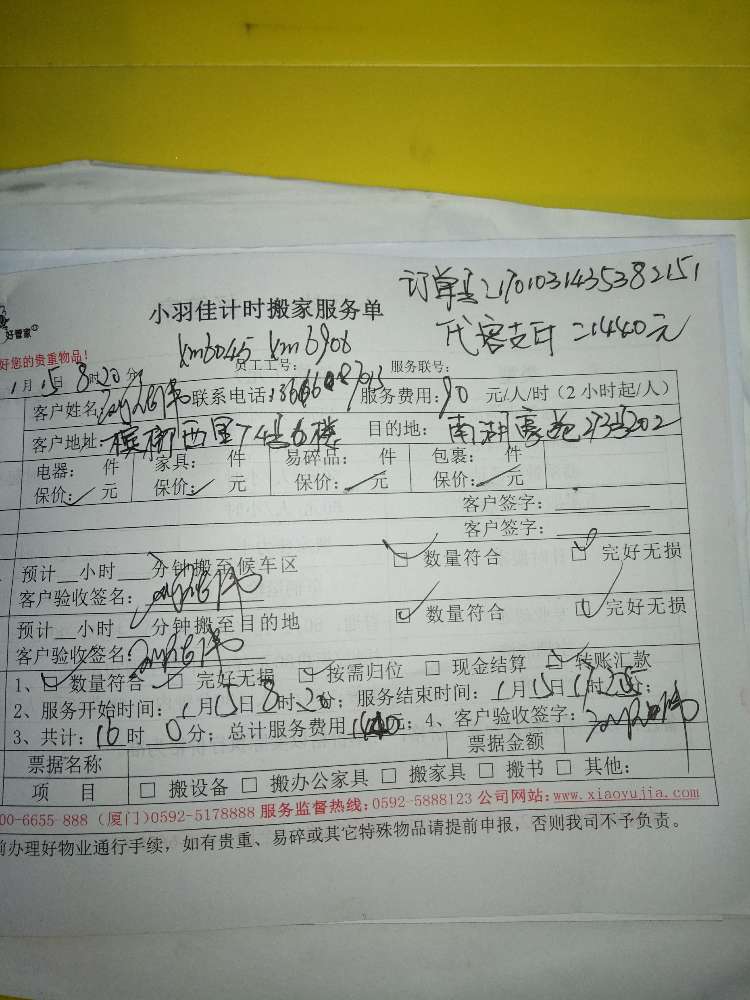 订单号21701031435382151
小羽佳计时搬家服务单
代客支付=1440元
好管家
xm6045 xm6906
好您的贵重物品!
员工工号: 服务联号:
1月15日8时20分
客户姓名: 联系电话: 服务费用:90元/人/时(2小时起/人)
客户地址:槟榔西里74号6楼 目的地:南湖豪苑273号202
电器: 件 家具: 件 易碎品: 件 包裹: 件
保价: 元 保价: 元 保价: 元 保价: 元
客户签字:
客户签字:
预计__小时___分钟搬至候车区 □ 数量符合 □ 完好无损
客户验收签名:
预计__小时___分钟搬至目的地 □ 数量符合 □ 完好无损
客户验收签名:
1、□ 数量符合 □ 完好无损 □ 按需归位 □ 现金结算 □ 转账汇款
2、服务开始时间:1月15日8时20分;服务结束时间:1月15日时分;
3、共计:16时0分;总计服务费用1440元;4、客户验收签字:
票据名称 票据金额
项 目 □ 搬设备 □ 搬办公家具 □ 搬家具 □ 搬书 □ 其他:
00-6655-888 (厦门)0592-5178888 服务监督热线:0592-5888123 公司网站:www.xiaoyujia.com
前办理好物业通行手续,如有贵重、易碎或其它特殊物品请提前申报,否则我司不予负责。